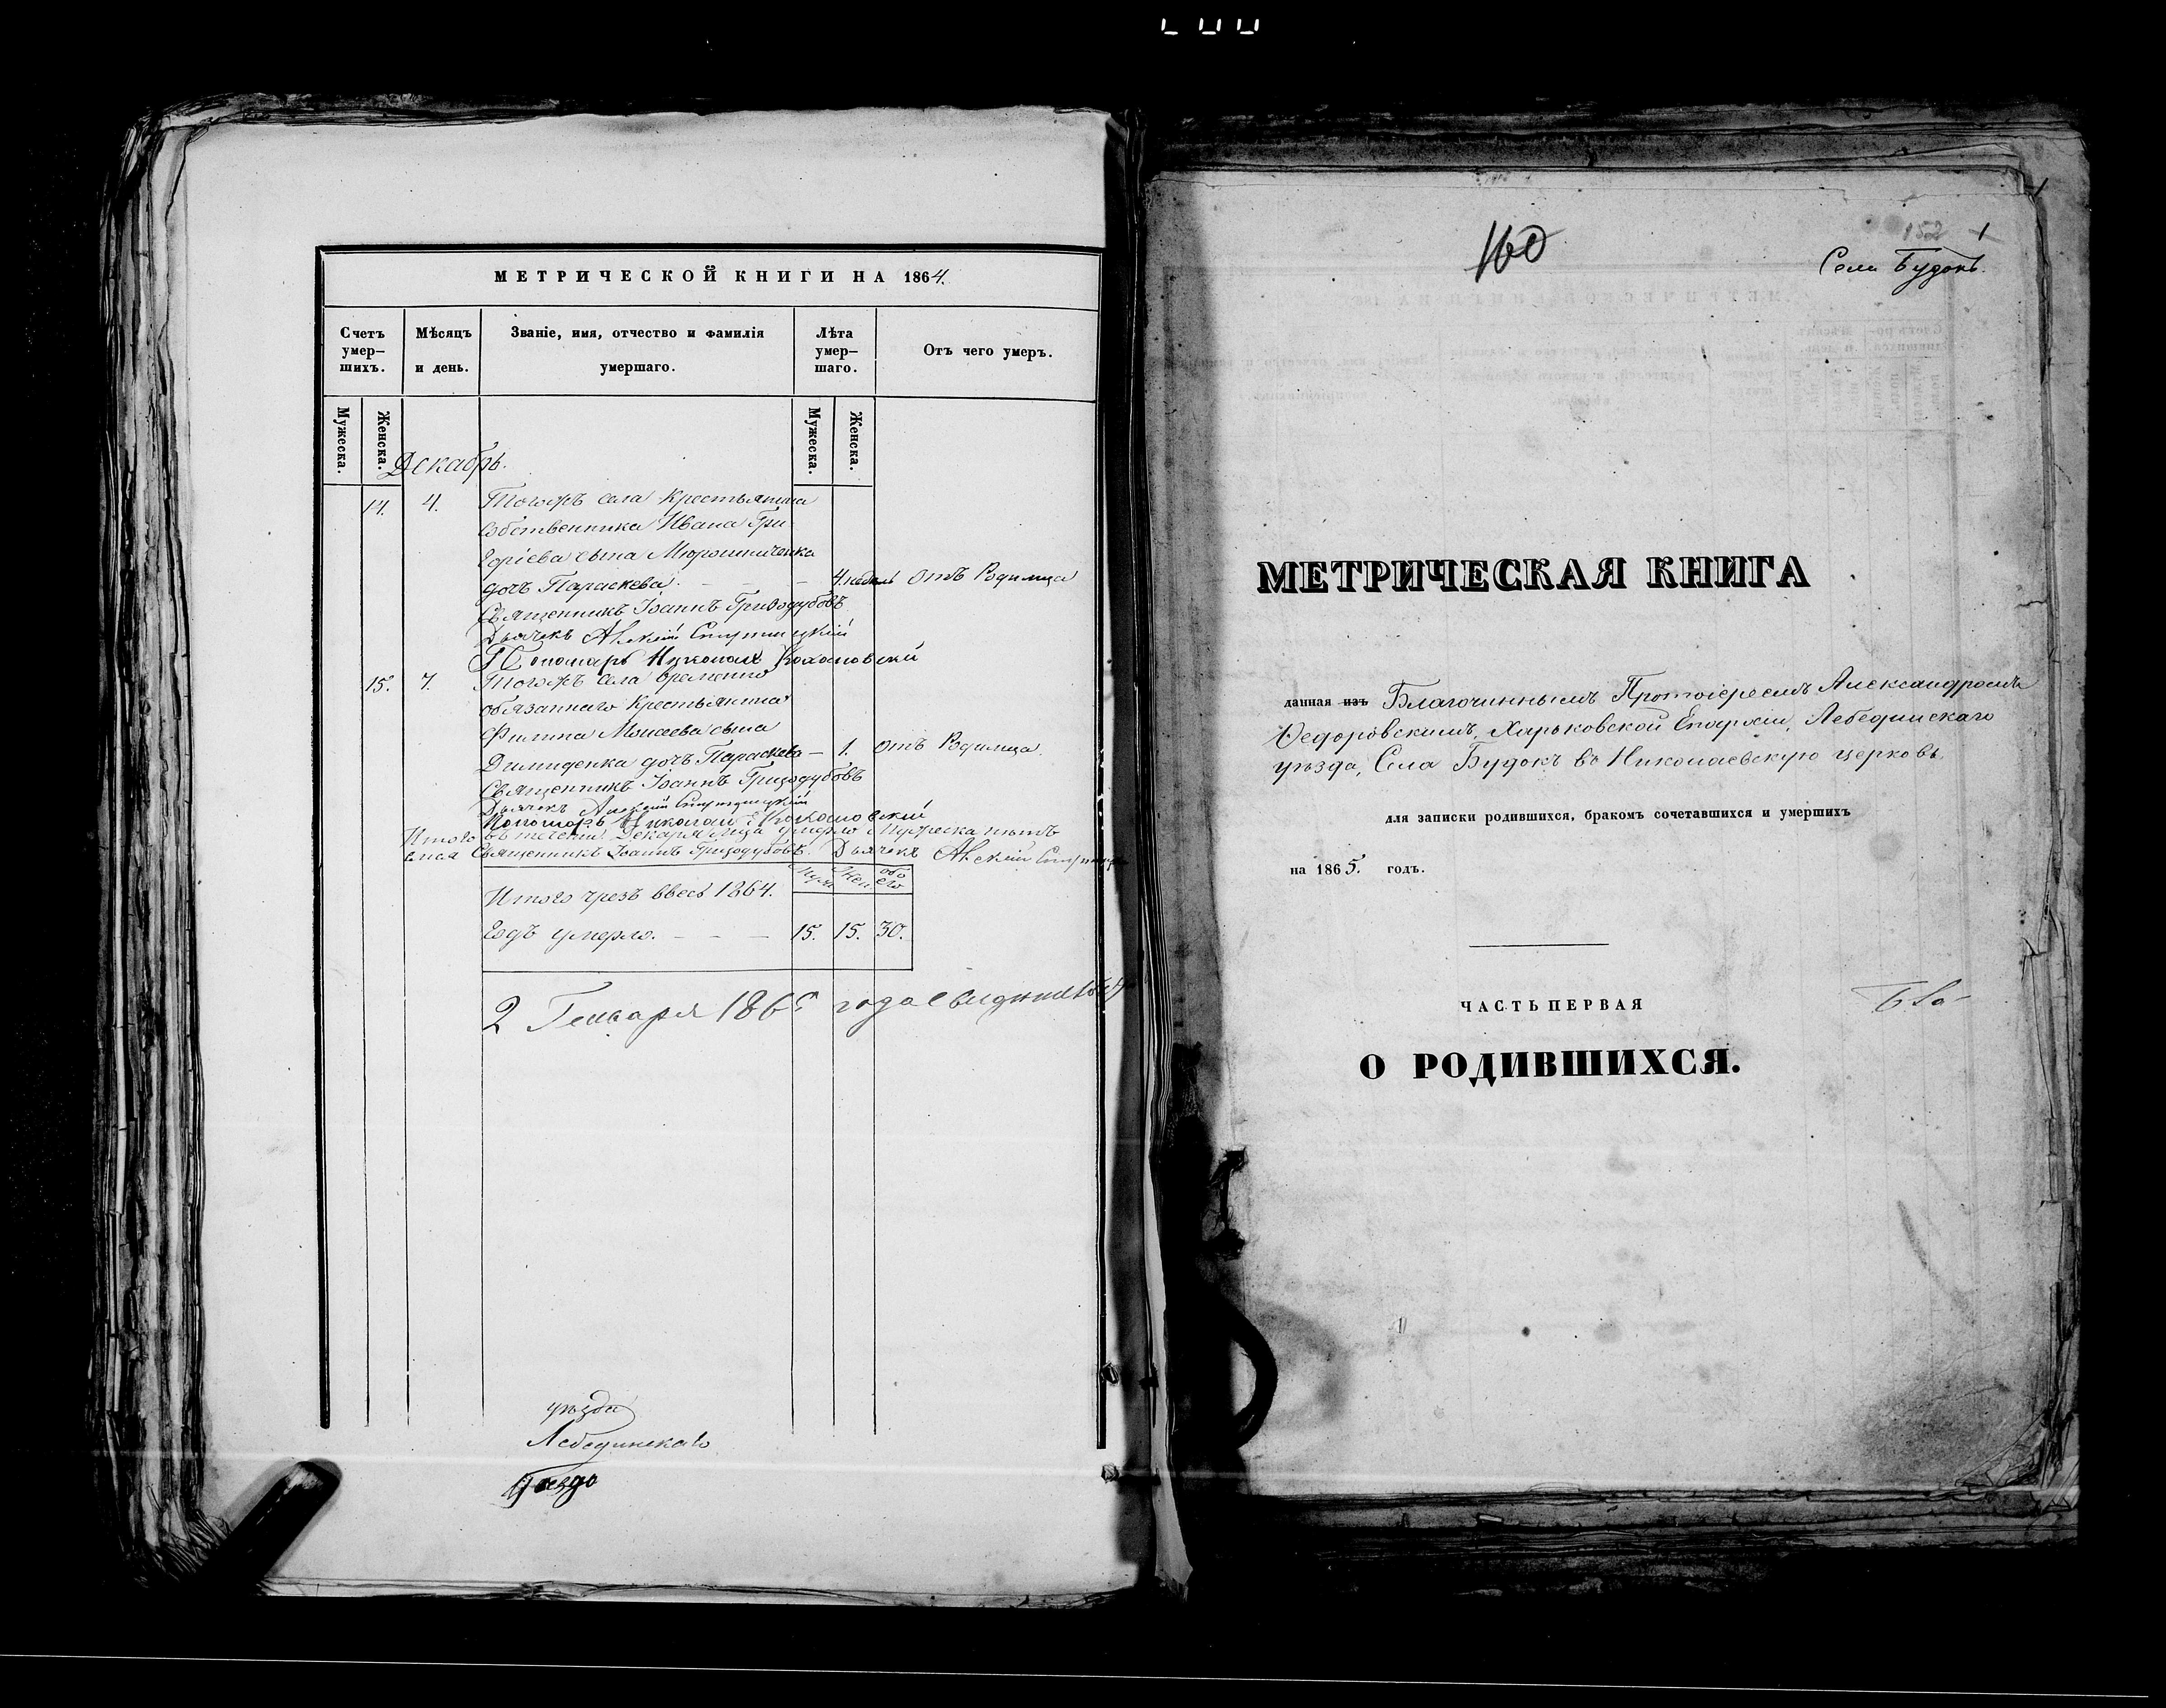 МЕТРИЧЕСКОЙ КНИГИ НА 1864.
Счетъ умер-
шихъ.
Мѣсяцъ
и день.
Званіе, имя, отчество и фамилія
умершаго.
Лѣта
умер-
шаго.
Отъ чего умеръ.
Мужеска.
Женска.
Мужеска.
Женска.
Декабрь.
14. 4. Тогожъ села Крестьянина
собственника Ивана Гри
горіева сына Мирошниченка
дочь Параскева. — — 4. недель отъ Родимца
Священникъ Іоаннъ Гризодубовъ
Дьячекъ Алексій
Пономарь Николай Кохановскій
15. 7. Тогожъ села временно
обязаннаго Крестьянина
Филипа Моисеева сына
Демиденка дочь Параскева — 1. отъ Родимца
Священникъ Іоаннъ Гризодубовъ
Дьячекъ Алексій
Пономарь Николай Кохановскій
Итого въ течении Декабря м-ца умерло
Священникъ Іоаннъ Гризодубовъ. Дьячекъ Алексій
Муж. Жен. обо
его
Итого чрезъ ввесь 1864.
годъ умерло. — — — 15. 15. 30.
2 Генваря 1865 года
уѣзда
Лебединскаго
160
152
1
Села Будокъ.
МЕТРИЧЕСКАЯ КНИГА
данная изъ Благочиннымъ Протоіереемъ Александромъ
Федоровскимъ, Харьковской Епархіи, Лебединскаго
уѣзда, Села Будокъ въ Николаевскую церковь
для записки родившихся, бракомъ сочетавшихся и умершихъ
на 1865. годъ.
ЧАСТЬ ПЕРВАЯ
О РОДИВШИХСЯ.